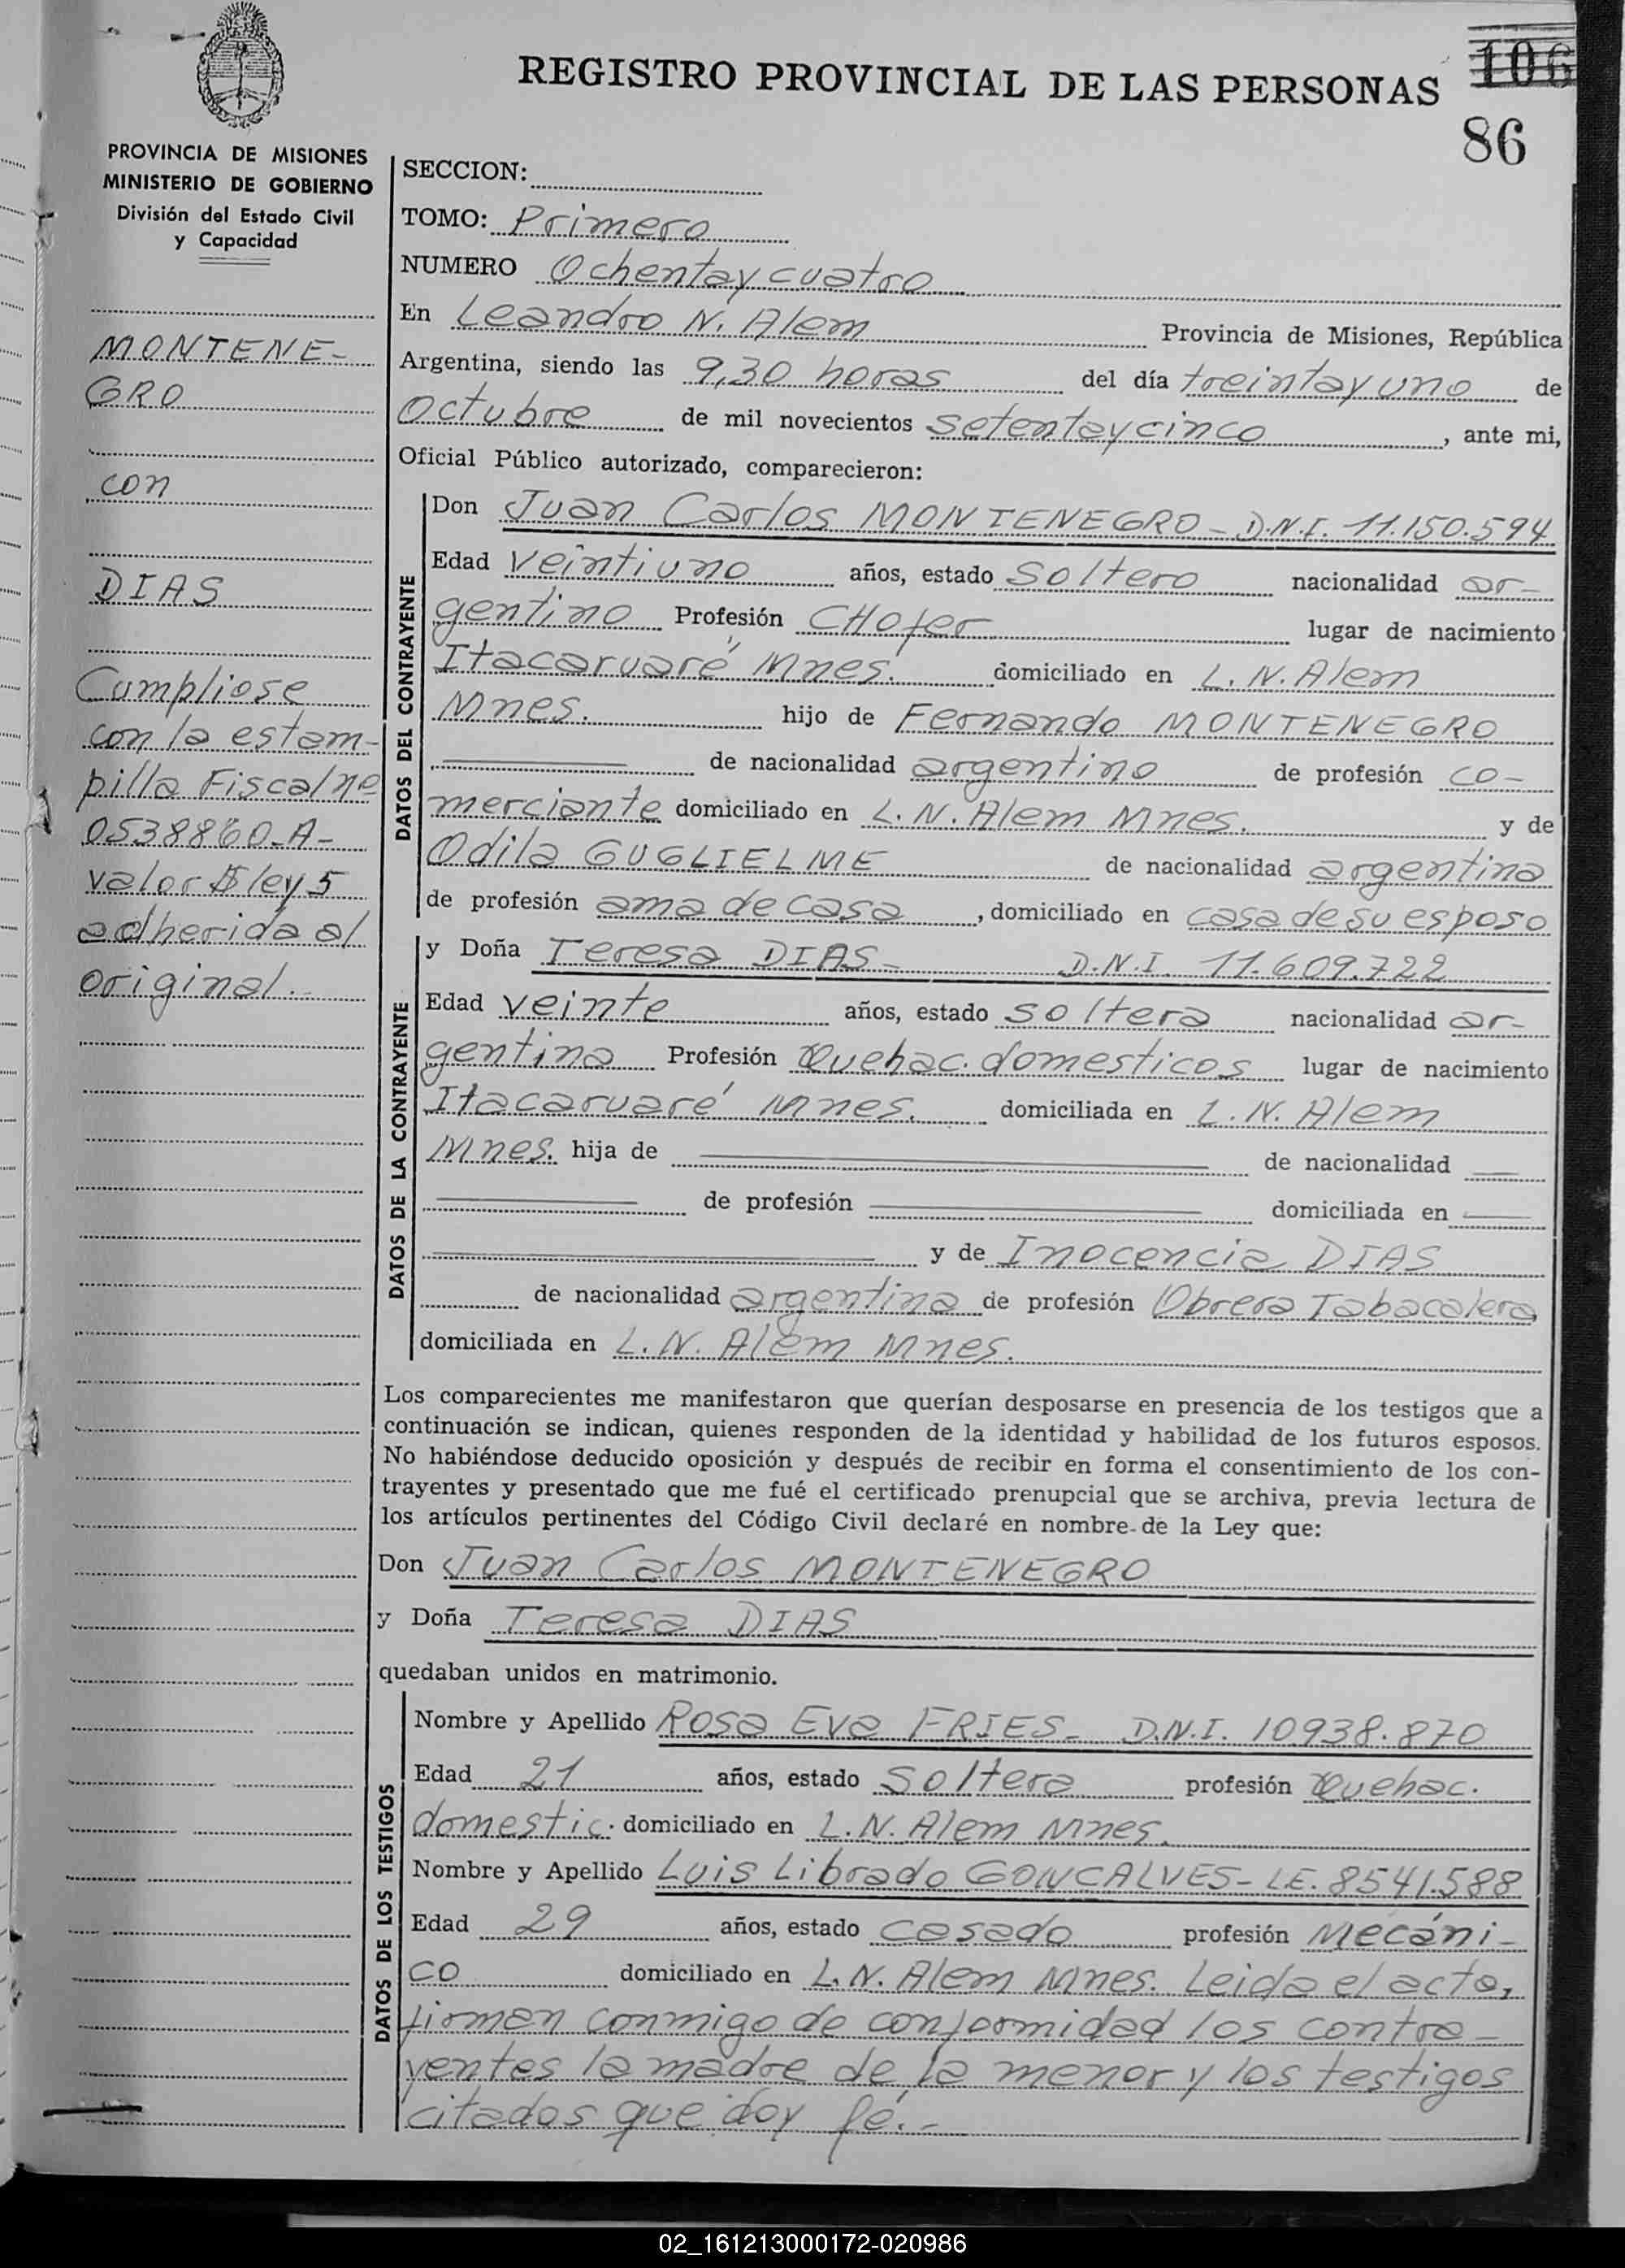 REGISTRO PROVINCIAL DE LAS PERSONAS
106
86
PROVINCIA DE MISIONES
MINISTERIO DE GOBIERNO
División del Estado Civil
y Capacidad
MONTENE-
GRO
con
DIAS
Cumpliose
con la estam-
pilla Fiscal nº
0538860-A-
valor $ ley 5
adherida al
original.
SECCION:
TOMO: Primero
NUMERO Ochentaycuatro
En Leandro N. Alem Provincia de Misiones, República
Argentina, siendo las 9,30 horas del día treintayuno de
Octubre de mil novecientos setentaycinco, ante mi,
Oficial Público autorizado, comparecieron:
DATOS DEL CONTRAYENTE
Don Juan Carlos MONTENEGRO - D.N.I. 11.150.594
Edad veintiuno años, estado soltero nacionalidad ar-
gentino Profesión CHofer lugar de nacimiento
Itacaruaré Mnes. domiciliado en L. N. Alem
Mnes. hijo de Fernando MONTENEGRO
de nacionalidad argentino de profesión co-
merciante domiciliado en L. N. Alem Mnes. y de
Odila GUGLIELME de nacionalidad argentina
de profesión ama de casa, domiciliado en casa de su esposo
DATOS DE LA CONTRAYENTE
y Doña Teresa DIAS- D.N.I. 11.609.722
Edad veinte años, estado soltera nacionalidad ar-
gentina Profesión Quehac. domesticos lugar de nacimiento
Itacaruaré Mnes. domiciliada en L. N. Alem
Mnes. hija de de nacionalidad
de profesión domiciliada en
y de Inocencia DIAS
de nacionalidad argentina de profesión Obrera Tabacalera
domiciliada en L. N. Alem Mnes.
Los comparecientes me manifestaron que querían desposarse en presencia de los testigos que a
continuación se indican, quienes responden de la identidad y habilidad de los futuros esposos.
No habiéndose deducido oposición y después de recibir en forma el consentimiento de los con-
trayentes y presentado que me fué el certificado prenupcial que se archiva, previa lectura de
los artículos pertinentes del Código Civil declaré en nombre de la Ley que:
Don Juan Carlos MONTENEGRO
y Doña Teresa DIAS
quedaban unidos en matrimonio.
DATOS DE LOS TESTIGOS
Nombre y Apellido Rosa Eva FRIES- D.N.I. 10.938.870
Edad 21 años, estado soltera profesión Quehac.
domestic. domiciliado en L. N. Alem Mnes.
Nombre y Apellido Luis Librado GONCALVES- L.E. 8541.588
Edad 29 años, estado casado profesión Mecáni-
co domiciliado en L. N. Alem Mnes. Leida el acta,
firman conmigo de conformidad los contra-
yentes la madre de la menor y los testigos
citados que doy fé.-
02_161213000172-020986